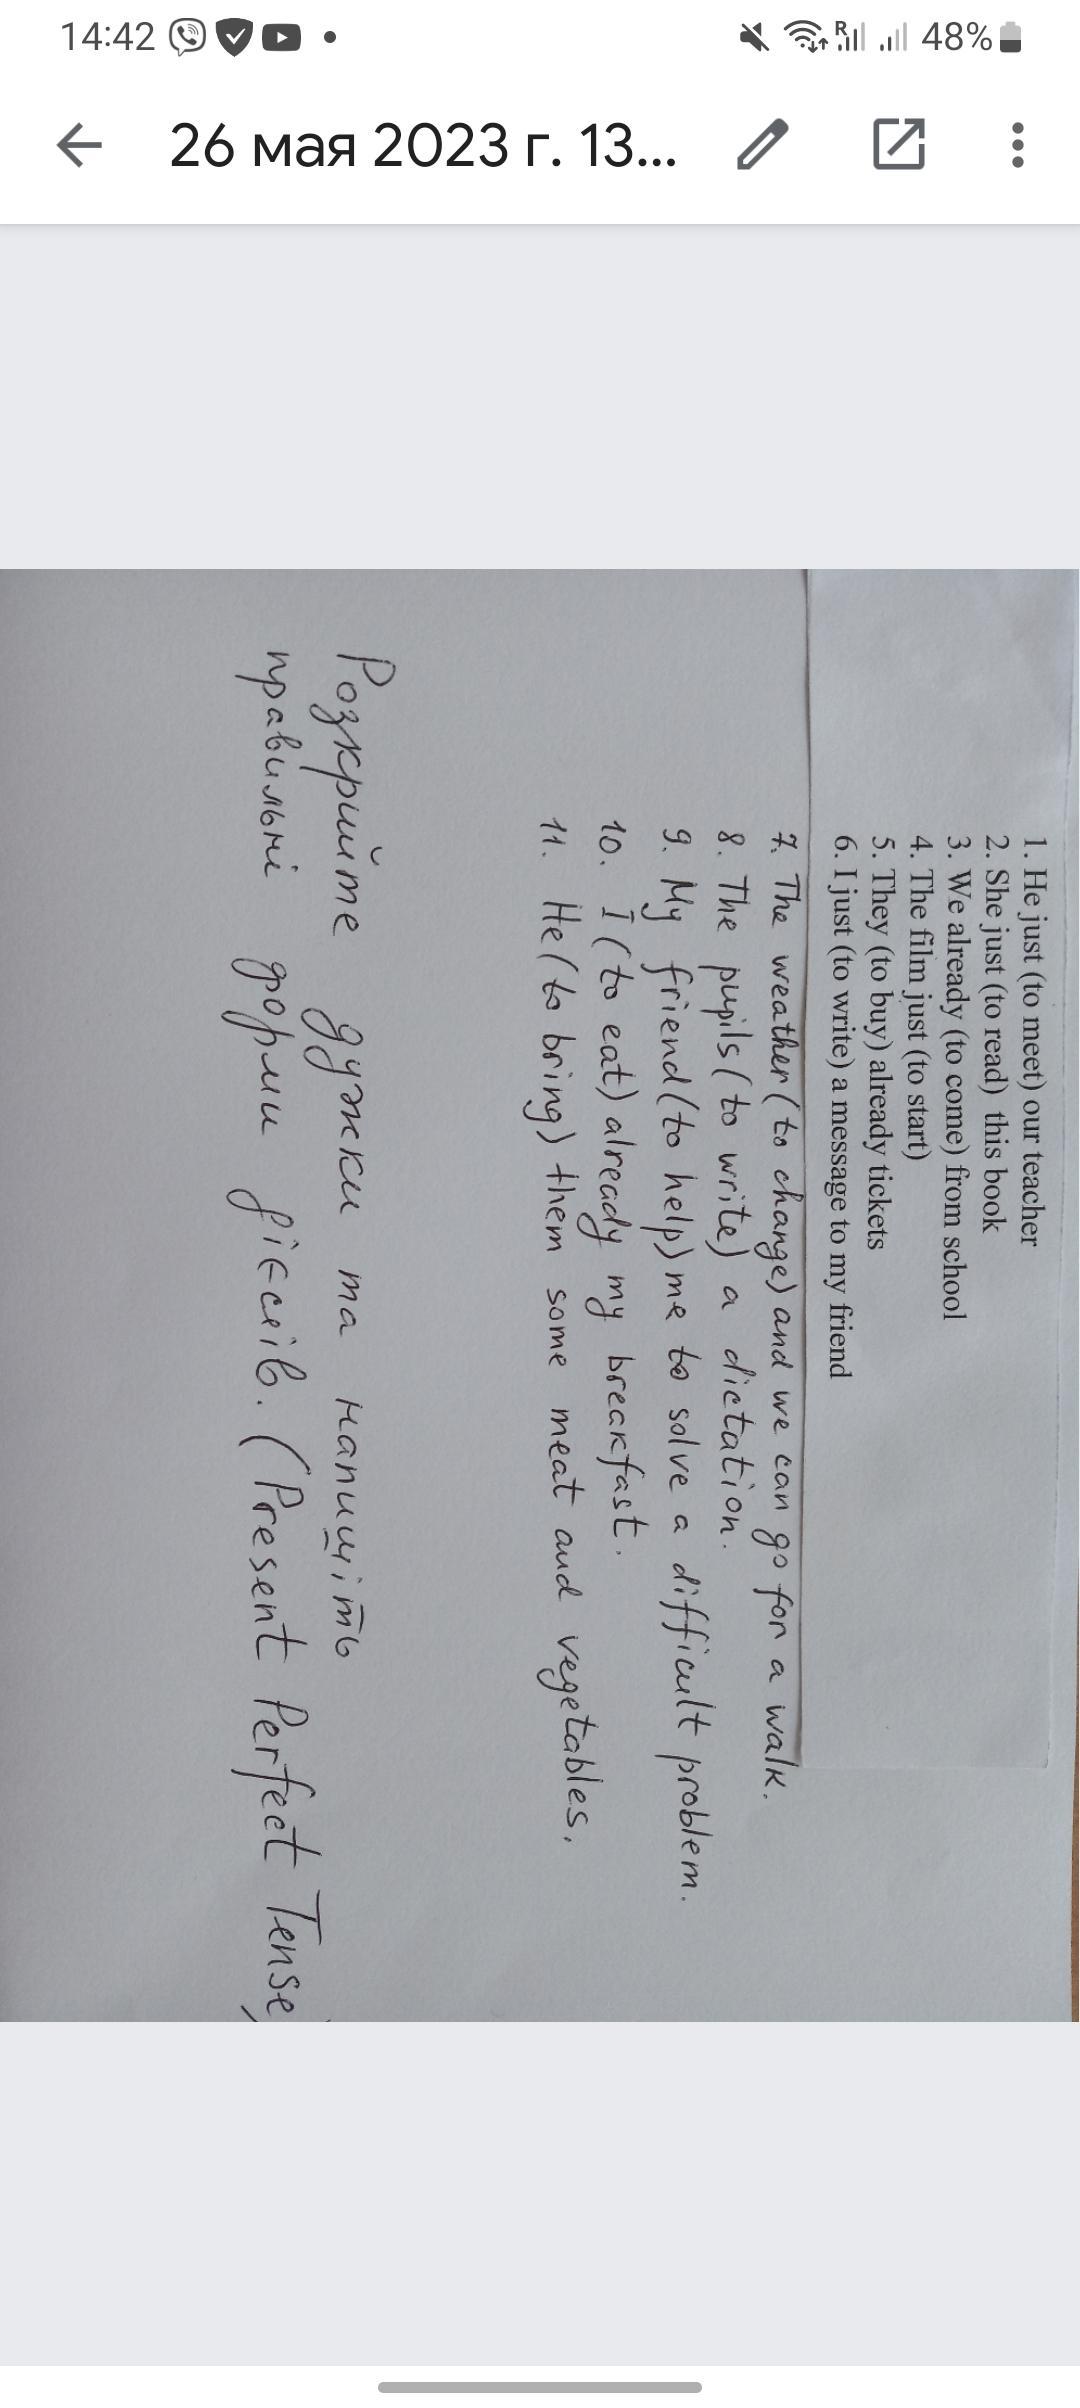 14:42
48%
26 мая 2023 г. 13...
1. He just (to meet) our teacher
2. She just (to read) this book
3. We already (to come) from school
4. The film just (to start)
5. They (to buy) already tickets
6. I just (to write) a message to my friend
7. The weather (to change) and we can go for a walk.
8. The pupils (to write) a dictation.
9. My friend (to help) me to solve a difficult problem.
10. I (to eat) already my breakfast.
11. He (to bring) them some meat and vegetables.
Розкрийте дужки та напишіть
правильні форми дієслів. (Present Perfect Tense)